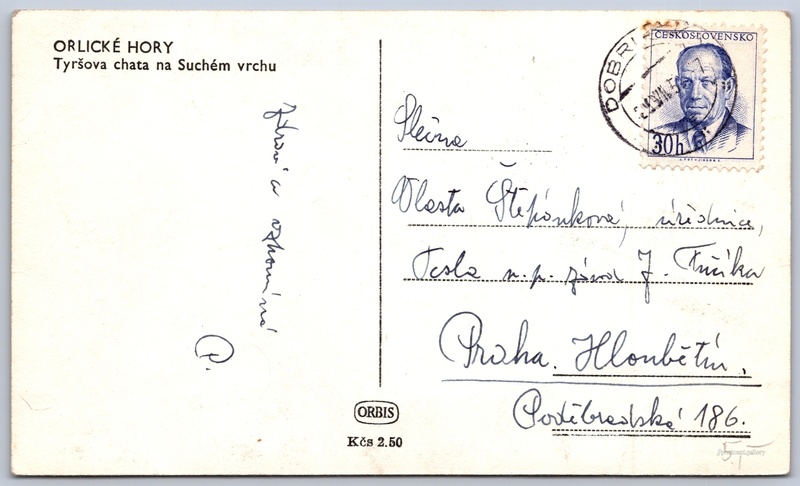 ORLICKÉ HORY
Tyršova chata na Suchém vrchu
Zdraví a vzpomíná
P.
ORBIS
Kčs 2.50
ČESKOSLOVENSKO
30h
DOBRU
Slečna
Vlasta Štěpánková, úřednice,
Tesla n.p. závod J. Fučíka
Praha. Hloubětín.
Poděbradská 186.
5,-